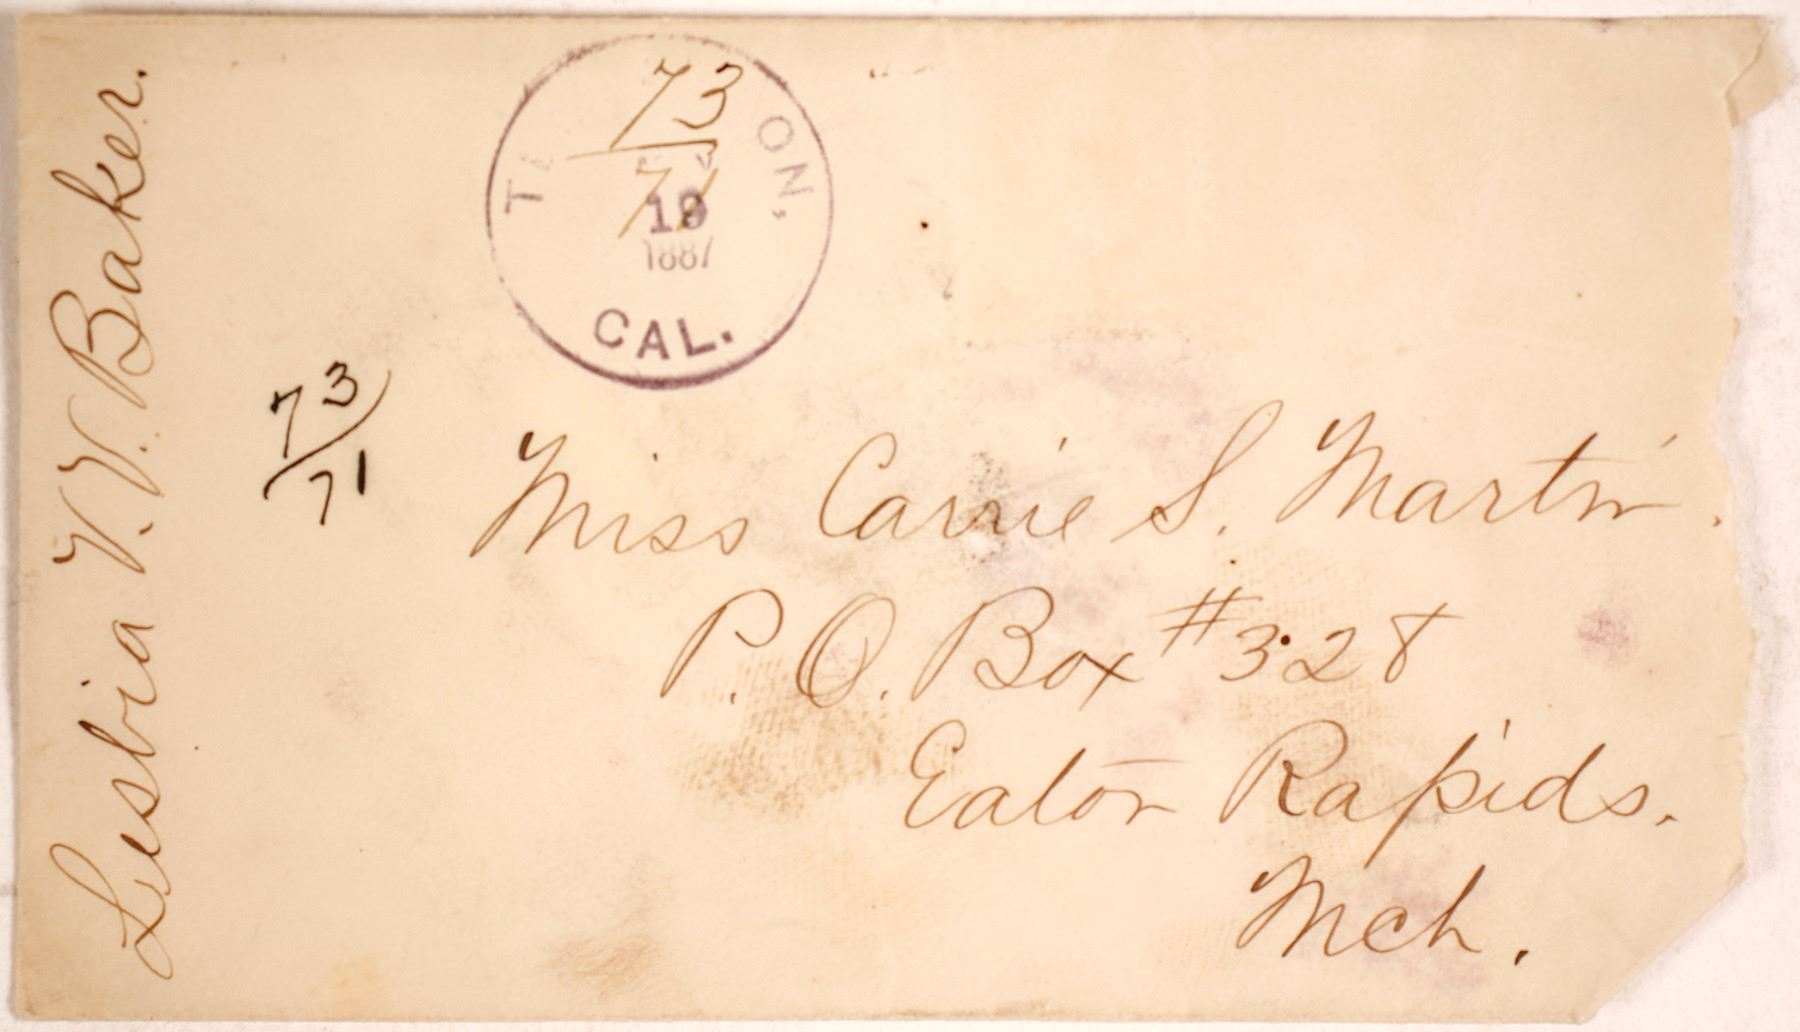 Lesbia V. V. Baker.
73
71
ON,
19
1887
CAL.
73/71
Miss Carrie S. Martin.
P. O. Box #328
Eaton Rapids.
Mch.